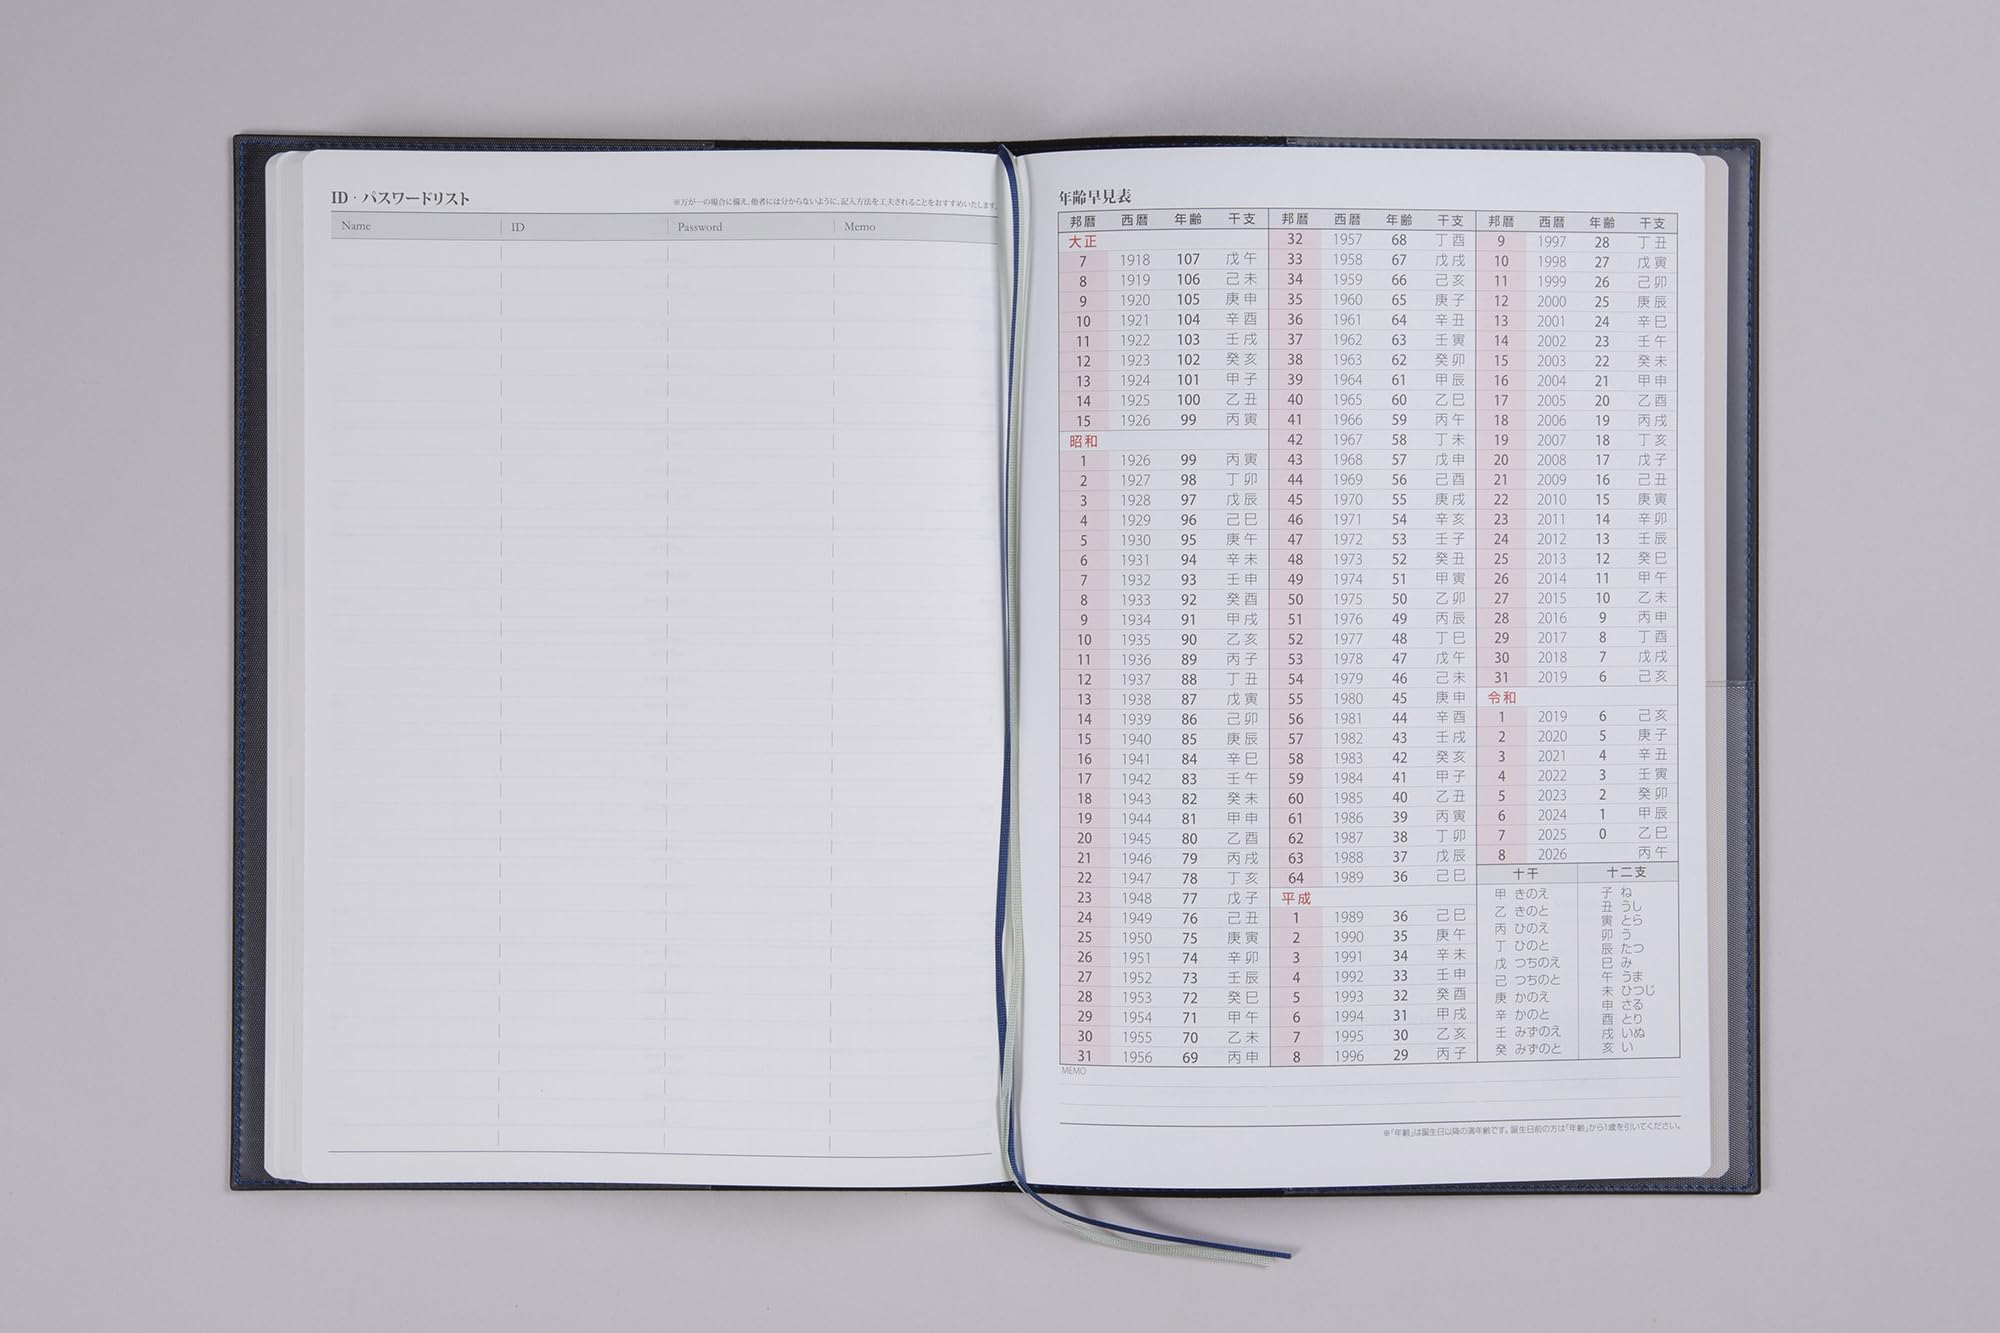 ID・パスワードリスト
※万が一の場合に備え、他者には分からないように、記入方法を工夫されることをおすすめいたします。
Name ID Password Memo
年齢早見表
邦暦 西暦 年齢 干支
大正
7 1918 107 戊午
8 1919 106 己未
9 1920 105 庚申
10 1921 104 辛酉
11 1922 103 壬戌
12 1923 102 癸亥
13 1924 101 甲子
14 1925 100 乙丑
15 1926 99 丙寅
昭和
1 1926 99 丙寅
2 1927 98 丁卯
3 1928 97 戊辰
4 1929 96 己巳
5 1930 95 庚午
6 1931 94 辛未
7 1932 93 壬申
8 1933 92 癸酉
9 1934 91 甲戌
10 1935 90 乙亥
11 1936 89 丙子
12 1937 88 丁丑
13 1938 87 戊寅
14 1939 86 己卯
15 1940 85 庚辰
16 1941 84 辛巳
17 1942 83 壬午
18 1943 82 癸未
19 1944 81 甲申
20 1945 80 乙酉
21 1946 79 丙戌
22 1947 78 丁亥
23 1948 77 戊子
24 1949 76 己丑
25 1950 75 庚寅
26 1951 74 辛卯
27 1952 73 壬辰
28 1953 72 癸巳
29 1954 71 甲午
30 1955 70 乙未
31 1956 69 丙申
邦暦 西暦 年齢 干支
32 1957 68 丁酉
33 1958 67 戊戌
34 1959 66 己亥
35 1960 65 庚子
36 1961 64 辛丑
37 1962 63 壬寅
38 1963 62 癸卯
39 1964 61 甲辰
40 1965 60 乙巳
41 1966 59 丙午
42 1967 58 丁未
43 1968 57 戊申
44 1969 56 己酉
45 1970 55 庚戌
46 1971 54 辛亥
47 1972 53 壬子
48 1973 52 癸丑
49 1974 51 甲寅
50 1975 50 乙卯
51 1976 49 丙辰
52 1977 48 丁巳
53 1978 47 戊午
54 1979 46 己未
55 1980 45 庚申
56 1981 44 辛酉
57 1982 43 壬戌
58 1983 42 癸亥
59 1984 41 甲子
60 1985 40 乙丑
61 1986 39 丙寅
62 1987 38 丁卯
63 1988 37 戊辰
64 1989 36 己巳
平成
1 1989 36 己巳
2 1990 35 庚午
3 1991 34 辛未
4 1992 33 壬申
5 1993 32 癸酉
6 1994 31 甲戌
7 1995 30 乙亥
8 1996 29 丙子
邦暦 西暦 年齢 干支
9 1997 28 丁丑
10 1998 27 戊寅
11 1999 26 己卯
12 2000 25 庚辰
13 2001 24 辛巳
14 2002 23 壬午
15 2003 22 癸未
16 2004 21 甲申
17 2005 20 乙酉
18 2006 19 丙戌
19 2007 18 丁亥
20 2008 17 戊子
21 2009 16 己丑
22 2010 15 庚寅
23 2011 14 辛卯
24 2012 13 壬辰
25 2013 12 癸巳
26 2014 11 甲午
27 2015 10 乙未
28 2016 9 丙申
29 2017 8 丁酉
30 2018 7 戊戌
31 2019 6 己亥
令和
1 2019 6 己亥
2 2020 5 庚子
3 2021 4 辛丑
4 2022 3 壬寅
5 2023 2 癸卯
6 2024 1 甲辰
7 2025 0 乙巳
8 2026 丙午
十干
甲 きのえ
乙 きのと
丙 ひのえ
丁 ひのと
戊 つちのえ
己 つちのと
庚 かのえ
辛 かのと
壬 みずのえ
癸 みずのと
十二支
子 ね
丑 うし
寅 とら
卯 う
辰 たつ
巳 み
午 うま
未 ひつじ
申 さる
酉 とり
戌 いぬ
亥 い
MEMO
※「年齢」は誕生日以降の満年齢です。誕生日前の方は「年齢」から1歳を引いてください。